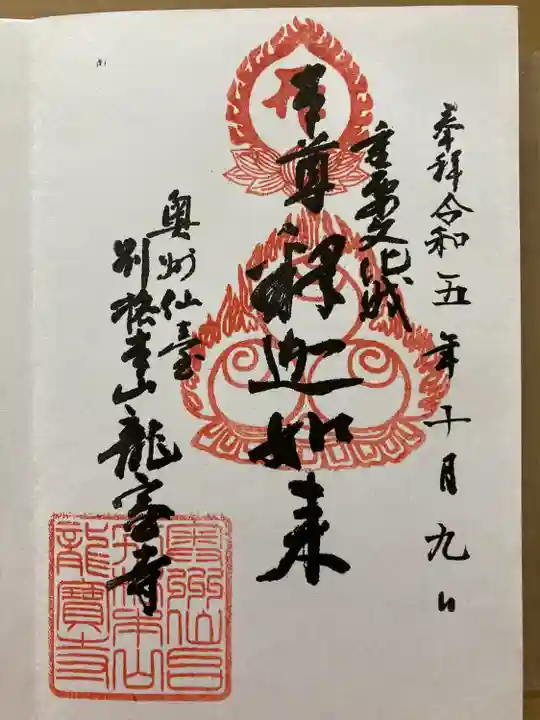 奉拝令和五年十月九日
重要文化財
本尊釋迦如来
奥州仙臺
別格本山龍寳寺
奥州仙台
別格本山
龍寳寺